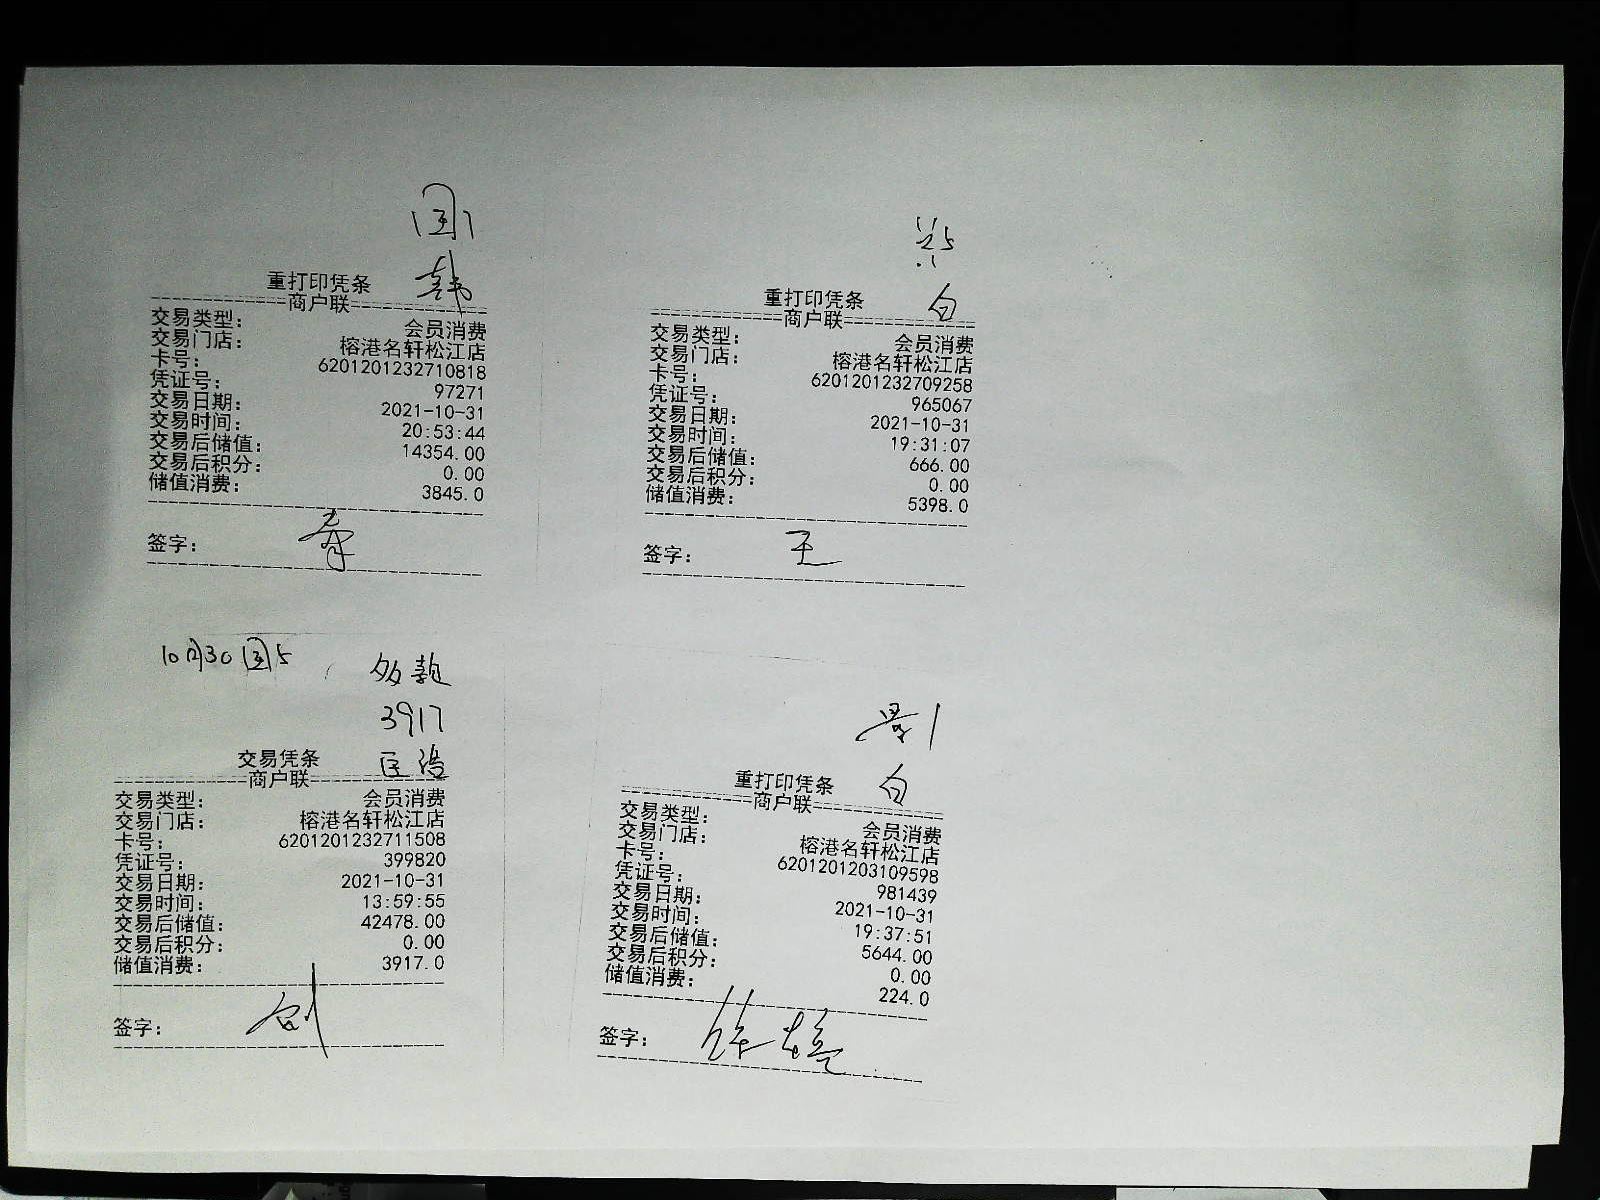 国1
韩
重打印凭条
商户联
交易类型： 会员消费
交易门店： 榕港名轩松江店
卡号： 6201201232710818
凭证号： 97271
交易日期： 2021-10-31
交易时间： 20:53:44
交易后储值： 14354.00
交易后积分： 0.00
储值消费： 3845.0
签字：
白
重打印凭条
商户联
交易类型： 会员消费
交易门店： 榕港名轩松江店
卡号： 6201201232709258
凭证号： 965067
交易日期： 2021-10-31
交易时间： 19:31:07
交易后储值： 666.00
交易后积分： 0.00
储值消费： 5398.0
签字： 王
10月30 国5
3917
交易凭条
商户联
交易类型： 会员消费
交易门店： 榕港名轩松江店
卡号： 6201201232711508
凭证号： 399820
交易日期： 2021-10-31
交易时间： 13:59:55
交易后储值： 42478.00
交易后积分： 0.00
储值消费： 3917.0
签字：
白
重打印凭条
商户联
交易类型： 会员消费
交易门店： 榕港名轩松江店
卡号： 6201201203109598
凭证号： 981439
交易日期： 2021-10-31
交易时间： 19:37:51
交易后储值： 5644.00
交易后积分： 0.00
储值消费： 224.0
签字：